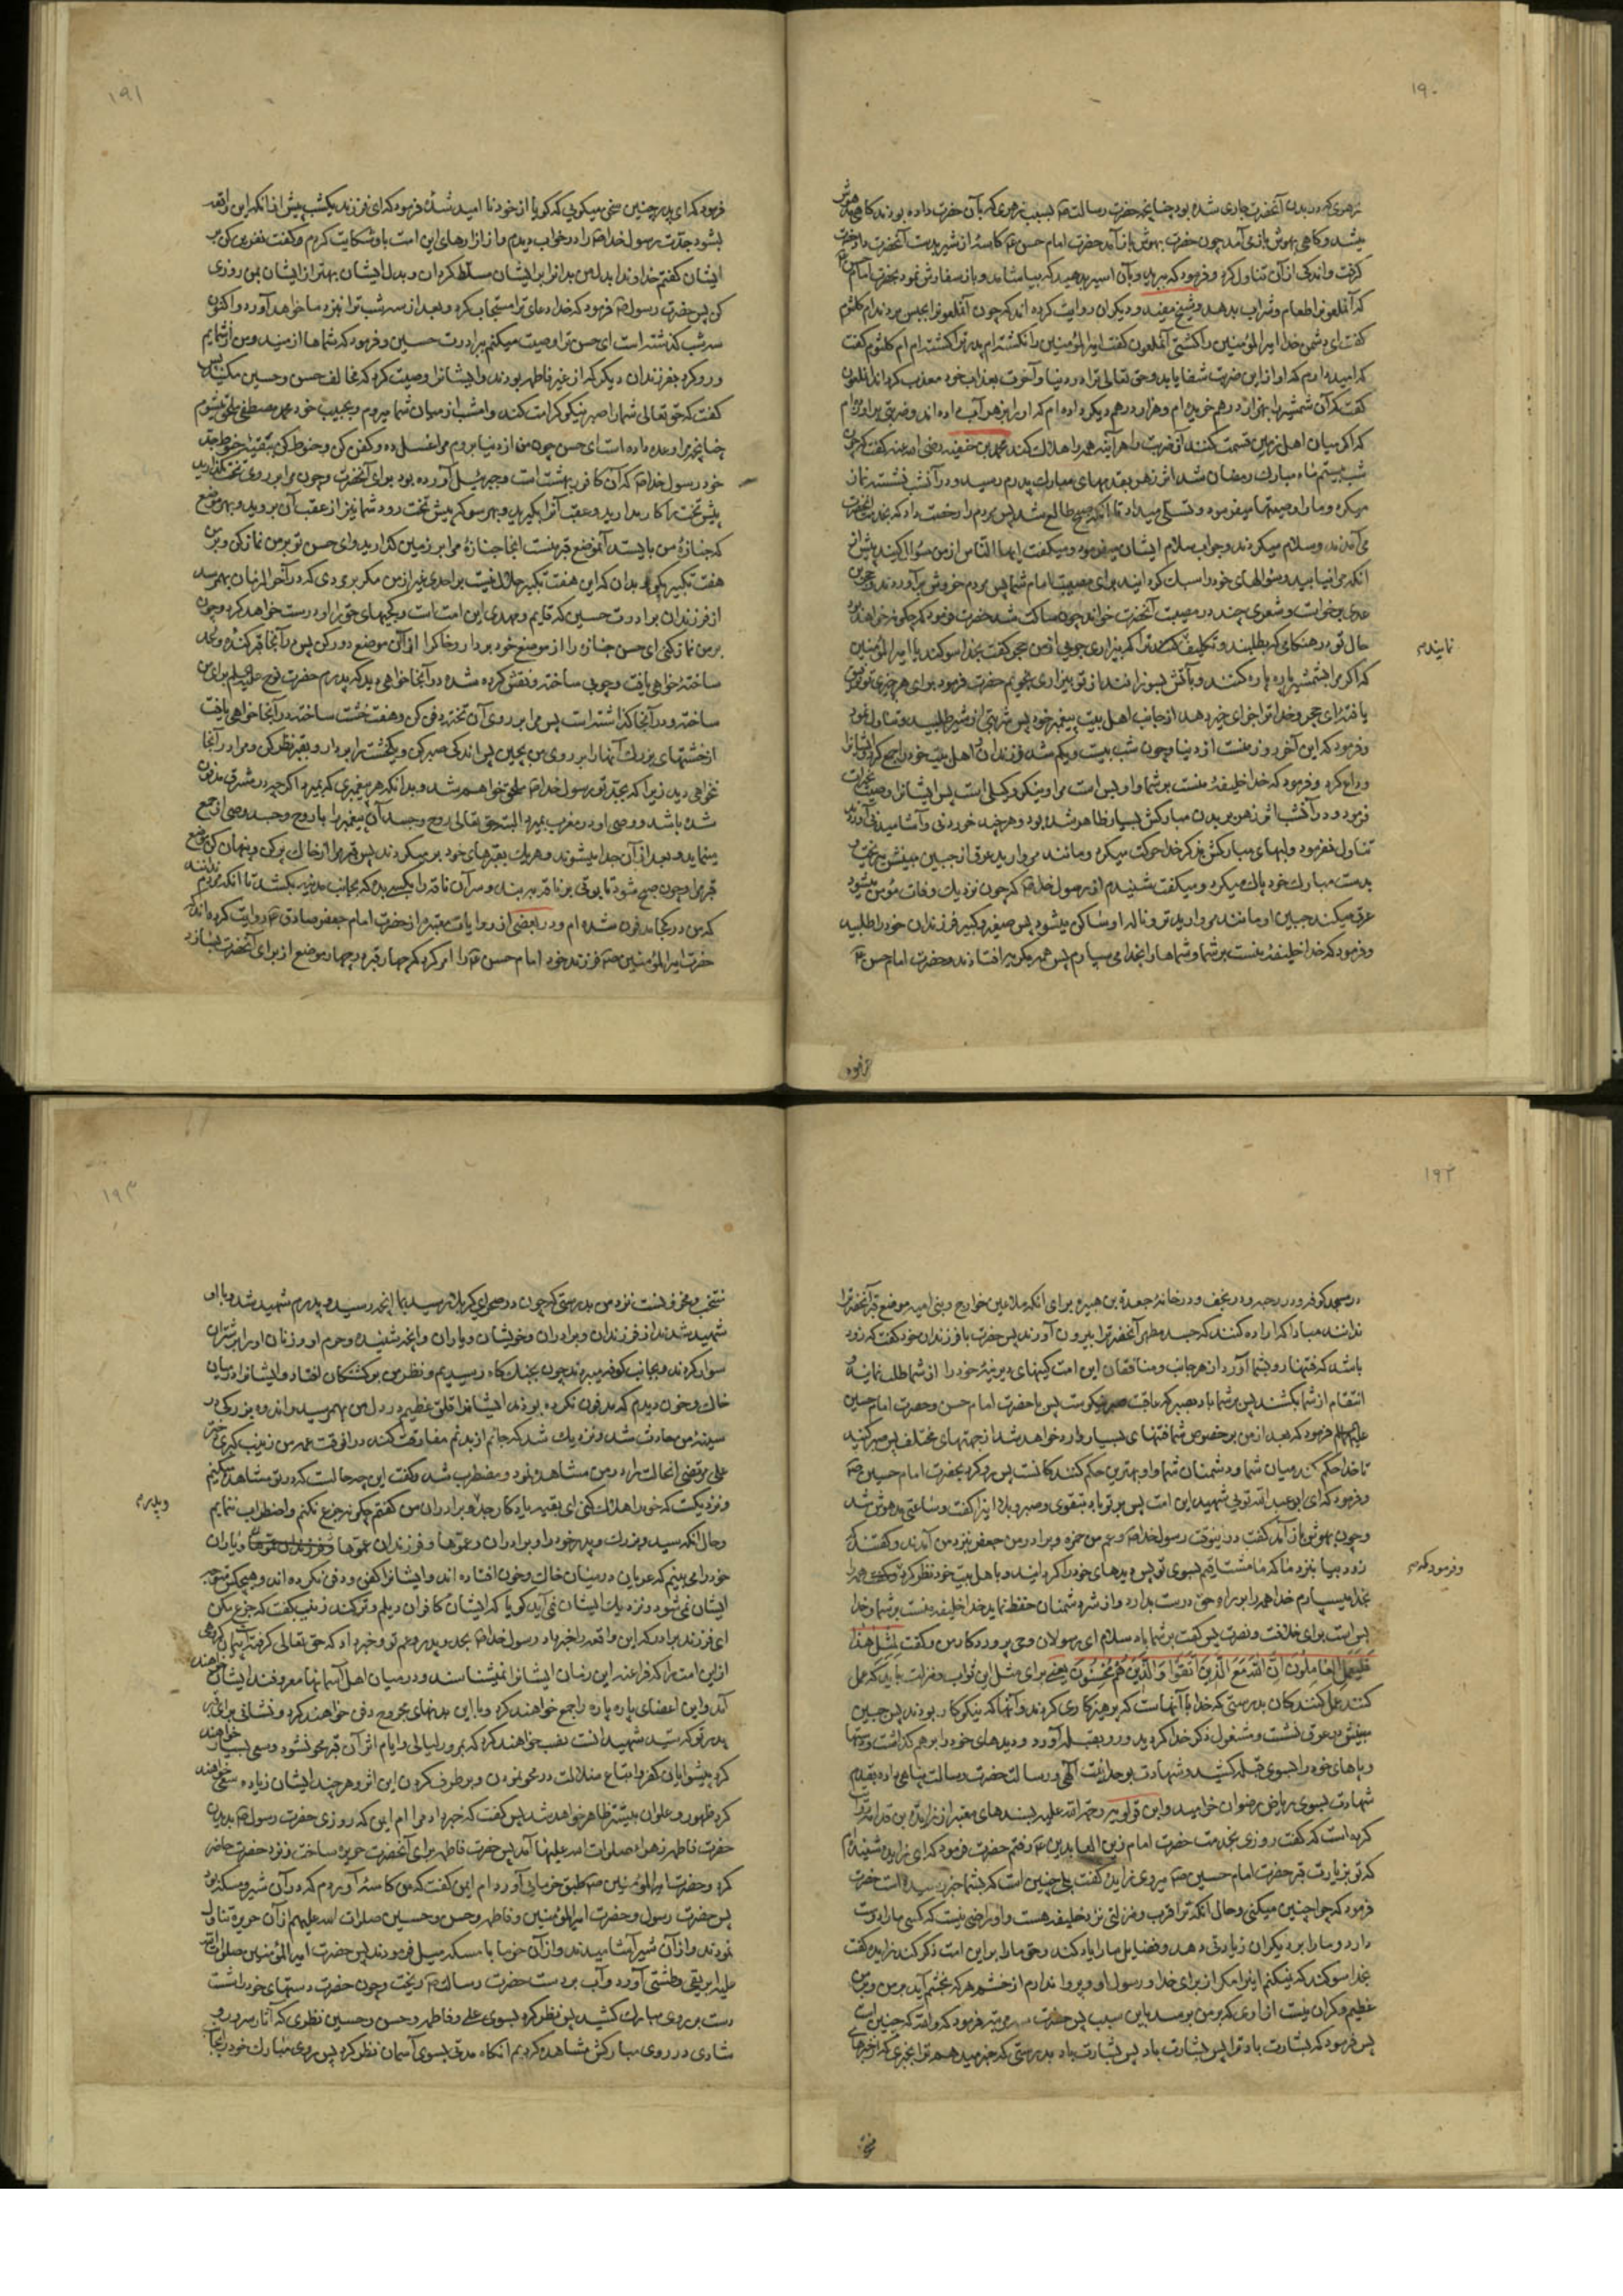 ۱۹۰
زهری که در بدن آنحضرت جاری شده بود چنانچه حضرت رسالت ص بسبب زهری که بآن حضرت داده بودند کاهی مدهوش
میشد و کاهی بهوش باز می آمد چون حضرت بهوش باز آمد حضرت امام حسن ع کاسهٔ از شیر بدست آنحضرت داد حضرت
کرفت و اندکی از آن تناول کرد و فرمود که ببرید و بآن اسیر بدهید که بیاشامد و باز سفارش نمود بحضرت امام حسن ع
که آنملعونرا طعام و شراب بدهد و شیخ مفید و دیکران روایت کرده اند که چون آنملعونرا بحبس بردند ام کلثوم
کفت ای دشمن خدا امیرالمؤمنین را کشتی آنملعون کفت امیرالمؤمنین را نکشته‌ام پدر ترا کشته‌ام ام کلثوم کفت
که امیدوارم که او از این ضربت شفا یابد و حق تعالی ترا در دنیا و آخرت بعذاب خود معذب کرداند آنملعون
کفت که آن شمشیر را بهزار درهم خریده ام و هزار درهم دیکر داده ام که اورا بزهر آب داده اند و ضربتی بر او زده ام
که اکر میان اهل زمین قسمت کنند آن ضربت را هر آینه همه را هلاک کند محمد بن حنفیه رضی الله عنه کفت که چون
شب بیستم ماه مبارک رمضان شد اثر زهر بقدمهای مبارک پدرم رسید و در آنشب نشسته نماز
میکرد و مارا وصیتها میفرمود و تسلی میداد تا آنکه صبح طالع شد پس مردم را رخصت داد که بخدمت آنحضرت
می آمدند و سلام میکردند و جواب سلام ایشان میفرمود و میکفت ایها الناس از من سؤال کنید پیش از
آنکه مرا نیابید و سؤالهای خود را سبک کردانید برای مصیبت امام شما پس مردم خروش برآوردند و حجر بن
عدی برخاست و شعری چند در مصیبت آنحضرت خواند چون ساکت شد حضرت فرمود که چکونه خواهد بود
حال تو در هنکامی که بطلبند و تکلیف کنند ترا که بیزاری جوئی از من حجر کفت بخدا سوکند یا امیرالمؤمنین
نمایندم
که اکر مرا بشمشیر پاره پاره کنند و بآتش بسوزانند از تو بیزاری نجویم حضرت فرمود برای هر چیزی توفیق
یافتهٔ ای حجر و خدا ترا جزای خیر دهد از جانب اهل بیت پیغمبر خود پس شربتی از شیر طلبید و تناول نمود
و فرمود که این آخر روز منست از دنیا و چون شب بیست و یکم شد فرزندان و اهل بیت خود را جمع کرد و ایشانرا
وداع کرد و فرمود که خدا خلیفهٔ منست بر شما و او بس است مرا و نیکو وکیلی است پس ایشانرا وصیت بخیرات
فرمود و در آنشب اثر زهر بر بدن مبارکش بسیار ظاهر شده بود و هر چند خوردنی و آشامیدنی آوردند
تناول نفرمود و لبهای مبارکش بذکر خدا حرکت میکرد و مانند مروارید عرق از جبین مبینش میریخت و
بدست مبارک خود پاک میکرد و میکفت شنیدم از رسول خدا ص که چون نزدیک وفات مؤمن میشود
عرق میکند جبین او مانند مروارید تر و ناله او ساکن میشود پس صغیر و کبیر فرزندان خود را طلبید
و فرمود که خدا خلیفهٔ منست بر شما و شماها را بخدا می سپارم پس همه بکریه افتادند و حضرت امام حسن ع
فرمود
۱۹۱
فرمود که ای پدر چنین سخن میکویی که کویا از خود نا امید شدهٔ فرمود که ای فرزند یکشب پیش از آنکه این واقعه
بشود جدت رسول خدا ص را در خواب دیدم و از آزارهای این امت باو شکایت کردم و کفت نفرین کن بر
ایشان کفتم خداوندا بدل من بدانرا بر ایشان مسلط کردان و بدل ایشان بهتر از ایشان بمن روزی
کن پس حضرت رسول ص فرمود که خدا دعای ترا مستجاب کرد و بعد از سه شب ترا بنزد ما خواهد آورد و اکنون
سه شب کذشته است ای حسن ترا وصیت میکنم ببرادرت حسین و فرمود که شماها از منید و من از شمایم
و رو کرد بفرزندان دیکر که از غیر فاطمه بودند و ایشانرا وصیت کرد که مخالف حسن و حسین مکنید پس
کفت که حق تعالی شمارا صبر نیکو کرامت کند و امشب از میان شما میروم و بحبیب خود محمد مصطفی ملحق میشوم
چنانچه مرا وعده داده است ای حسن چون من از دنیا بروم مرا غسل ده و کفن کن و حنوط کن ببقیه حنوط جد
خود رسول خدا ص که آن کافور بهشت است و جبرئیل آورده بود برای آنحضرت و چون مرا بر روی تخت کذارید
پیش تخت را کار مدارید و عقب آنرا بکیرید و بهر سو که پیش تخت رود شما نیز از عقب آن بروید و بهر موضع
که جنازهٔ من بایستد آنموضع قبر منست آنجا جنازهٔ مرا بر زمین کذارید و ای حسن تو بر من نماز کن و بر من
هفت تکبیر بکو و بدان که این هفت تکبیر حلال نیست بر احدی غیر از من مکر بر مردی که در آخر الزمان بهم رسد
از فرزندان برادرت حسین که قایم و مهدی این امت است و کجیهای حق را او درست خواهد کرد و چون
بر من نماز کنی ای حسن جنازه را از موضع خود بردار و خاک را از آن موضع دور کن پس در آنجا قبر کنده و لحد
ساختهٔ خواهی یافت و چوبی ساخته و نقش کرده شده در آنجا خواهی دید که پدرم حضرت نوح علیه السلم برای من
ساخته و در آنجا کذاشته است پس مرا بر روی آن تخته دفن کن و هفت خشت ساخته در آنجا خواهی یافت
از خشتهای بزرک آنهارا بر روی من بچین پس اندکی صبر کن و یکخشت را بردار و بقبر نظر کن و مرا در آنجا
نخواهی دید زیرا که بجد تو رسول خدا ص ملحق خواهم شد و بدانکه هر پیغمبری که بمیرد اکرچه در مشرق مدفون
شده باشد و وصی او در مغرب بمیرد البته حق تعالی روح و جسد آن پیغمبر را با روح و جسد وصی او جمع
مینماید و بعد از آن جدا میشوند و هر یک بقبرهای خود برمیکردند پس قبر مرا از خاک پر کن و پنهان کن موضع
قبر مرا و چون صبح شود تابوتی بر ناقه ببند و سر آن ناقه را بکسی بده که بجانب مدینه بکشد تا آنکه مردم ندانند
که من در کجا مدفون شده ام و در بعضی از روایات معتبره از حضرت امام جعفر صادق ع روایت کرده اند که
حضرت امیرالمؤمنین ص فرزند خود امام حسن ع را امر کرد که چهار قبر در چهار موضع از برای آنحضرت بسازد
۱۹۲
در مسجد کوفه و در رحبه و در نجف و در خانهٔ جعدة بن هبیره برای آنکه ملاعین خوارج و بنی امیه موضع قبر آنحضرترا
ندانند مبادا که اراده کنند که جسد مطهر آنحضرترا بیرون آورند پس حضرت با فرزندان خود کفت که زود
باشد که فتنها رو بشما آورد از هر جانب و منافقان این امت کینهای دیرینهٔ خود را از شما طلب نمایند و
انتقام از شما بکشند پس بر شما باد بصبر که عاقبت صبر نیکوست پس با حضرت امام حسن و حضرت امام حسین
علیهم السلم فرمود که بعد از من بر خصوص شما فتنهای بسیار وارد خواهد شد از جهتهای مختلف پس صبر کنید
تا خدا حکم کند میان شما و دشمنان شما و او بهترین حکم کنندکانست پس رو کرد بحضرت امام حسین ص
و فرمود که ای ابو عبد الله تویی شهید این امت پس بر تو باد بتقوی و صبر و بلا اینرا کفت و ساعتی مدهوش شد
و چون بهوش باز آمد کفت در اینوقت رسول خدا ص و عم من حمزه و برادر من جعفر نزد من آمدند و کفتند که
زود بیا بنزد ما که ما مشتاقیم بسوی تو پس دیدهای خود را کردانید و باهل بیت خود نظر کرد و کفت همه را
و فرمود که
بخدا میسپارم خدا همه را براه حق درست بدارد و از شر دشمنان حفظ نماید خدا خلیفهٔ منست بر شما و خدا
بس است برای خلافت و نصرت پس کفت بر شما باد سلام ای رسولان وحی پروردکار من و کفت لِمِثْلِ هٰذا
فَلْیَعْمَلِ الْعامِلُونَ اِنَّ اللّٰهَ مَعَ الَّذینَ اتَّقَوْا وَالَّذینَ هُمْ مُحْسِنُونَ یعنی برای مثل این ثواب و منزلت باید که عمل
کنند عمل کنندکان بدرستی که خدا با آنهاست که پرهیزکاری کردند و آنها که نیکوکار بودند پس جبین
مبینش در عرق نشست و مشغول ذکر خدا کردید و رو بقبله آورد و دیدهای خود را بر هم کذاشت و دستها
و پاهای خود را بسوی قبله کشید و شهادت بوحدانیت الهی و رسالت حضرت رسالت پناهی داده بقدم
شهادت بسوی ریاض رضوان خرامید و ابن قولویه رحمة الله علیه بسندهای معتبر از زایدة بن قدامه روایت
کرده است که کفت روزی بخدمت حضرت امام زین العابدین ع رفتم حضرت فرمود که ای زایده شنیده ام
که تو بزیارت قبر حضرت امام حسین ص میروی زایده کفت بلی چنین است که بشما خبر رسیده است حضرت
فرمود که چرا چنین میکنی و حال آنکه ترا قرب و منزلتی نزد خلیفه هست و او راضی نیست که کسی مارا دوست
دارد و مارا بر دیکران زیادتی دهد و فضایل مارا یاد کند و حق مارا بر این امت ذکر کند زایده کفت
بخدا سوکند که نمیکنم اینرا مکر از برای خدا و رسول او و پروا ندارم از خشم هر که بخشم آید بر من و بر من
عظیم و کران نیست آزاری که بمن برسد باین سبب پس حضرت سه مرتبه فرمود که والله که چنین است
پس فرمود که بشارت باد ترا پس بشارت باد پس بشارت باد بدرستی که خبر میدهم ترا بخبری که از خبرهای
۱۹۳
منتخب و مخزونست نزد من بدرستی که چون در صحرای کربلا رسید بما آنچه رسید و پدرم شهید شد و با او
شهید شدند از فرزندان و برادران و خویشان و یاران و آنچه شنیدهٔ و حرم او و زنان اورا بر شتران
سوار کردند و بجانب کوفه میبردند چون بجنکاه رسیدیم و نظر من بر کشتکان افتاد و ایشانرا در میان
خاک و خون دیدم که مدفون نکرده بودند ایشانرا قلق عظیم در دل من بهم رسید و اندوه بزرکی در
سینهٔ من حادث شد و نزدیک شد که جانم از بدنم مفارقت کند در آنوقت عمهٔ من زینب کبری دختر
علی مرتضی آنحالت را در من مشاهده نمود و مضطرب شد و کفت این چه حالت که در تو مشاهده میکنم
و نزدیکست که خود را هلاک کنی ای بقیه یادکار جد و برادران من کفتم چکونه جزع نکنم و اضطراب ننمایم
و پدرم
و حال آنکه سید و بزرک و پدر خود را و برادران و عموها و فرزندان عموها و یاران
خود را می بینم که عریان در میان خاک و خون افتاده اند و ایشانرا کفن و دفن نکرده اند و هیچکس متوجه
ایشان نمی شود و نزدیک ایشان نمی آید کویا که ایشان کافران دیلم و ترکند زینب کفت که جزع مکن
ای فرزند برادر که این واقعه را خبر داد رسول خدا ص بجد و پدر و عم تو و خبر داد که حق تعالی کرفته پیمان کروهی
از این امت را که فراعنه این زمان ایشانرا نمیشناسند و در میان اهل آسمانها معروفند ایشان خواهند
آمد و این اعضای پاره پاره را جمع خواهند کرد و با این بدنهای مجروح دفن خواهند کرد و نشانی برای قبر
پدر تو که سید شهیدانست نصب خواهند کرد که بمرور لیالی و ایام اثر آن قبر محو نشود و سعی بسیار خواهند
کرد پیشوایان کفر و اتباع ضلالت در محو نمودن و برطرف کردن این اثر و هر چند ایشان زیاده سعی خواهند
کرد ظهور و علو آن بیشتر ظاهر خواهد شد پس کفت که خبر داد مرا ام ایمن که روزی حضرت رسول ص بدیدن
حضرت فاطمه زهرا صلوات الله علیها آمد پس حضرت فاطمه برای آنحضرت حریره ساخت و نزد حضرت حاضر
کرد و حضرت امیرالمؤمنین ص طبق خرمایی آورد و ام ایمن کفت که من کاسهٔ آوردم که در آن شیر و مسکه بود
پس حضرت رسول و حضرت امیرالمؤمنین و فاطمه و حسن و حسین صلوات الله علیهم از آن حریره تناول
نمودند و از آن شیر آشامیدند و از آن خرما با مسکه میل فرمودند پس حضرت امیرالمؤمنین صلوات الله
علیه ابریقی و طشتی آورد و آب بر دست حضرت رسالت ص ریخت و چون حضرت دستهای خود را شست
دست بر روی مبارک کشید پس نظر کرد بسوی علی و فاطمه و حسن و حسین نظری که آثار سرور و
شادی در روی مبارکش مشاهده کردیم آنکاه مدتی بسوی آسمان نظر کرد پس روی مبارک خود را بجانب